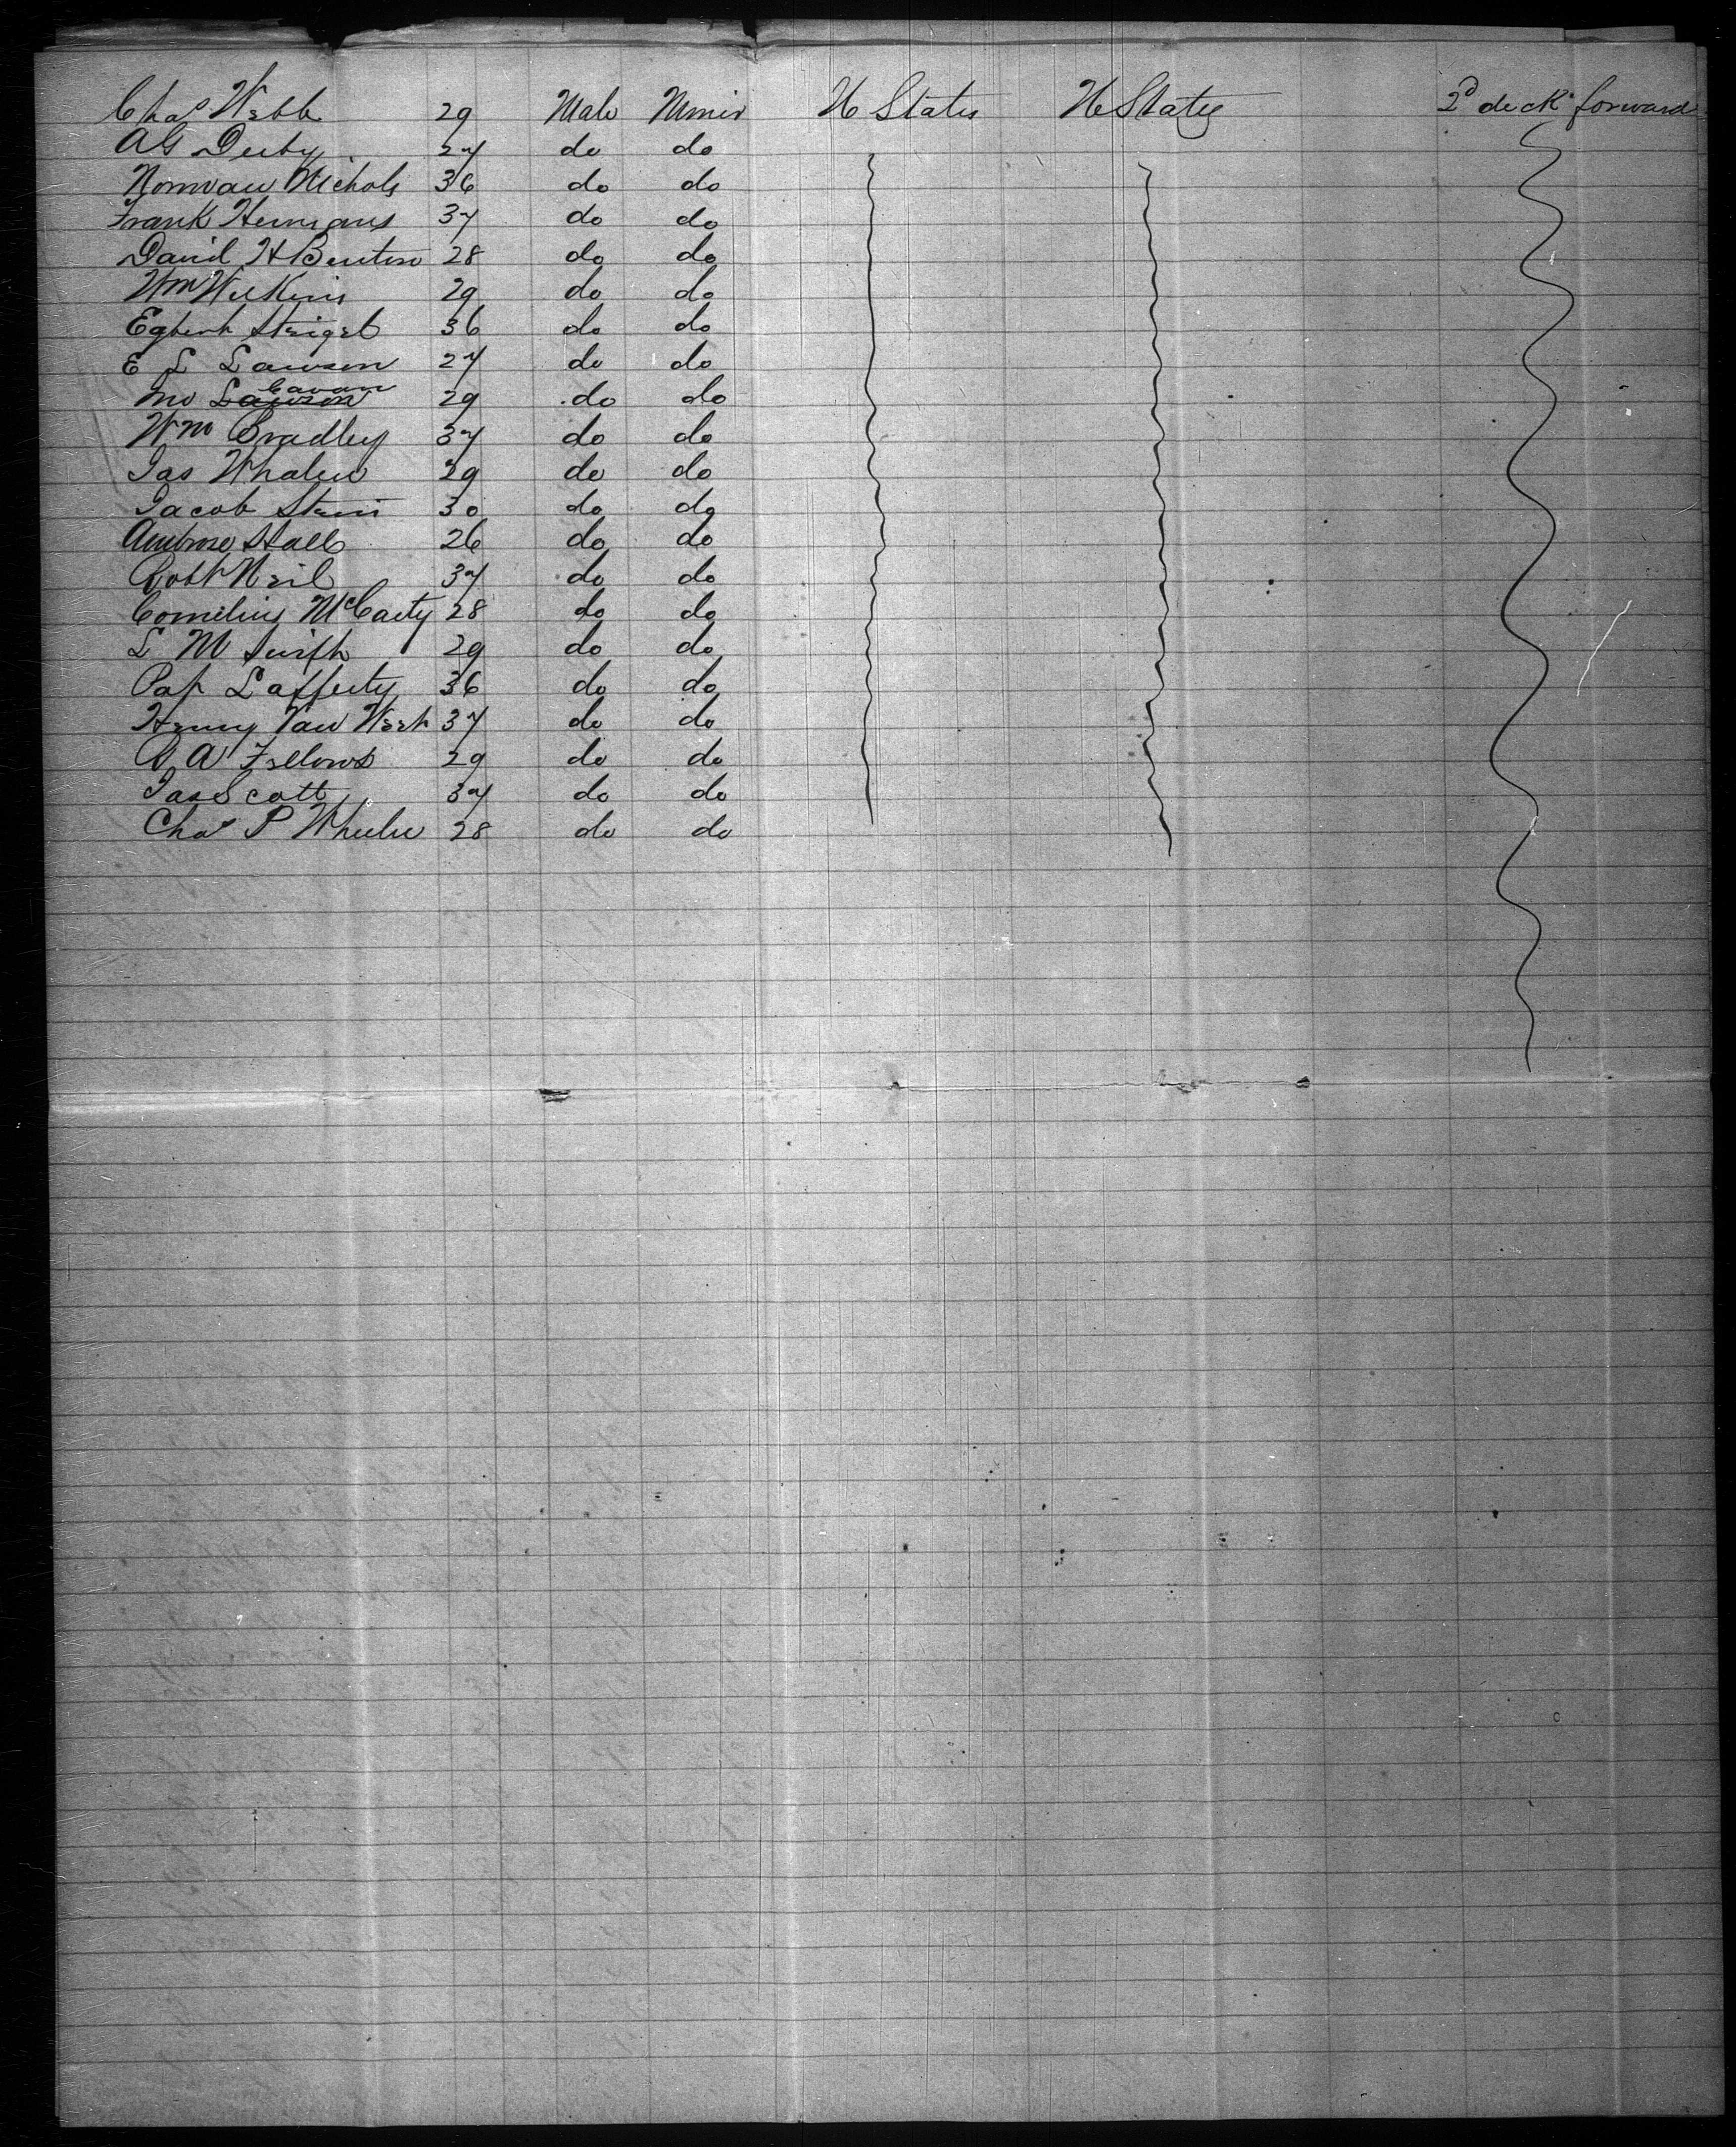 Chas Webb 29 Male Miner U States U States 2d deck forward
AG Derby 27 do do
Norman Nichols 36 do do
Frank Hermans 37 do do
David H Benton 28 do do
Wm Wilkins 29 do do
Egbert Steigel 36 do do
E L Lawson 27 do do
Jno Lawson Cavan 29 do do
Wm Bradley 37 do do
Jas Whalen 29 do do
Jacob Stein 30 do do
Ambrose Hall 26 do do
Robt Neil 37 do do
Cornelius McCarty 28 do do
L M Swift 29 do do
Pat Lafferty 36 do do
Henry Van West 37 do do
A Fellows 29 do do
Jas Scott 37 do do
Chas P Wheeler 28 do do